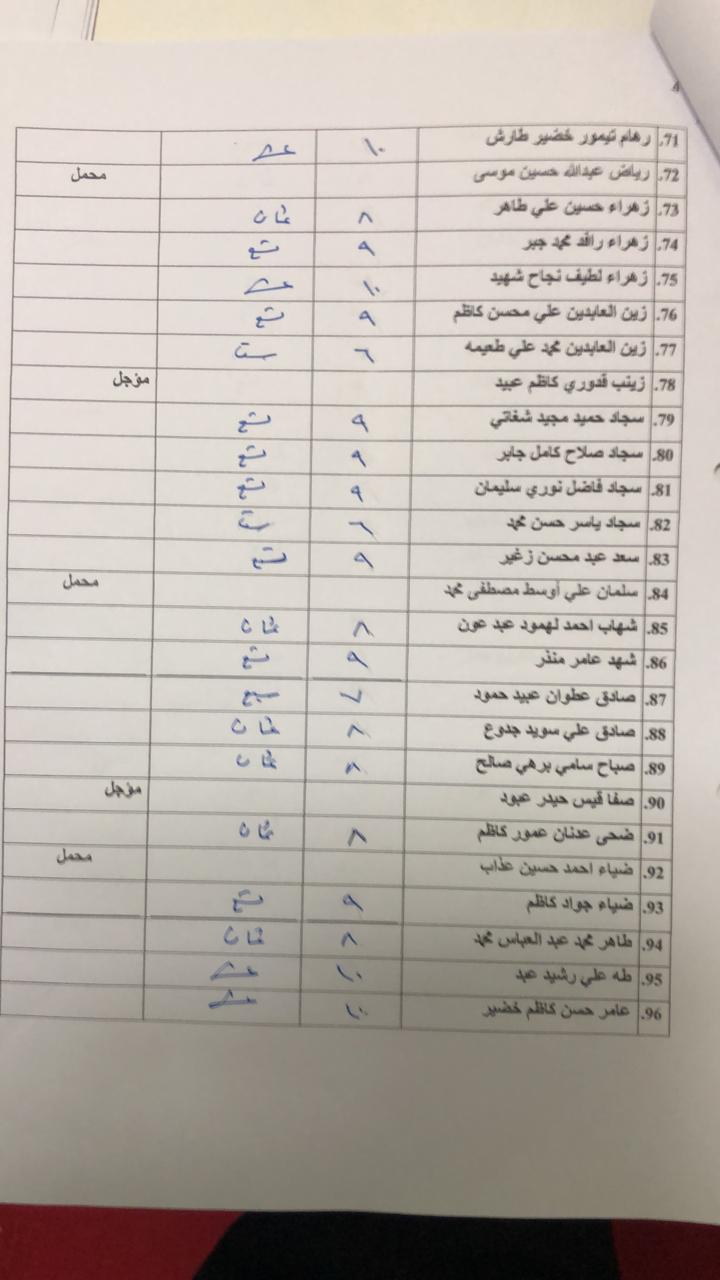 4
71. رهام تيمور خضير طارش ١٠ عشر
72. رياض عبدالله حسين موسى محمل
73. زهراء حسين علي طاهر ٨ ثمان
74. زهراء رافد محمد جبر ٩ تسع
75. زهراء لطيف نجاح شهيد ١٠ عشر
76. زين العابدين علي محسن كاظم ٩ تسع
77. زين العابدين محمد علي طعيمه ٦ ست
78. زينب قدوري كاظم عبيد مؤجل
79. سجاد حميد مجيد شغاتي ٩ تسع
80. سجاد صلاح كامل جابر ٩ تسع
81. سجاد فاضل نوري سليمان ٩ تسع
82. سجاد ياسر حسن محمد ٦ ست
83. سعد عبد محسن زغير ٩ تسع
84. سلمان علي أوسط مصطفى محمد محمل
85. شهاب احمد لهمود عبد عون ٨ ثمان
86. شهد عامر منذر ٩ تسع
87. صادق عطوان عبيد حمود ٧ سبع
88. صادق علي سويد جدوع ٨ ثمان
89. صباح سامي برهي صالح ٨ ثمان
90. صفا قيس حيدر عبود مؤجل
91. ضحى عدنان عمور كاظم ٨ ثمان
92. ضياء احمد حسين عذاب محمل
93. ضياء جواد كاظم ٩ تسع
94. طاهر محمد عبد العباس محمد ٨ ثمان
95. طه علي رشيد عبد ١٠ عشر
96. عامر حسن كاظم خضير ١٠ عشر